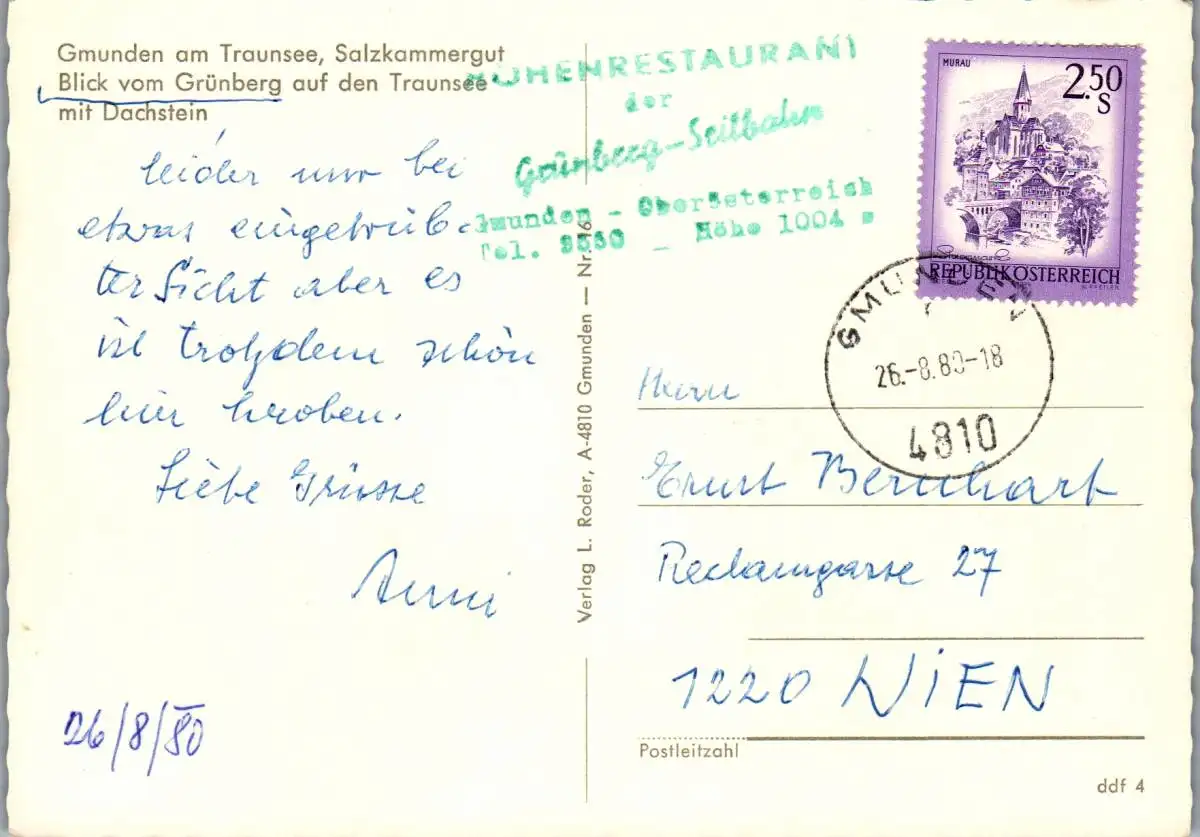 Gmunden am Traunsee, Salzkammergut
Blick vom Grünberg auf den Traunsee
mit Dachstein
HÖHENRESTAURANT
der
Grünberg-Seilbahn
Gmunden - Oberösterreich
Tel. 9550 _ Höhe 1004 m
leider nur bei
etwas eingetrüb-
ter Sicht aber es
ist trotzdem schön
hier hroben.
Liebe Grüsse
Anni
26/8/80
Verlag L. Roder, A-4810 Gmunden — Nr.
MURAU
2.50
S
REPUBLIK ÖSTERREICH
GMUNDEN
26.-8.80-18
4810
Herrn
Ernst Bernhart
Reclamgasse 27
1220 WIEN
Postleitzahl
ddf 4